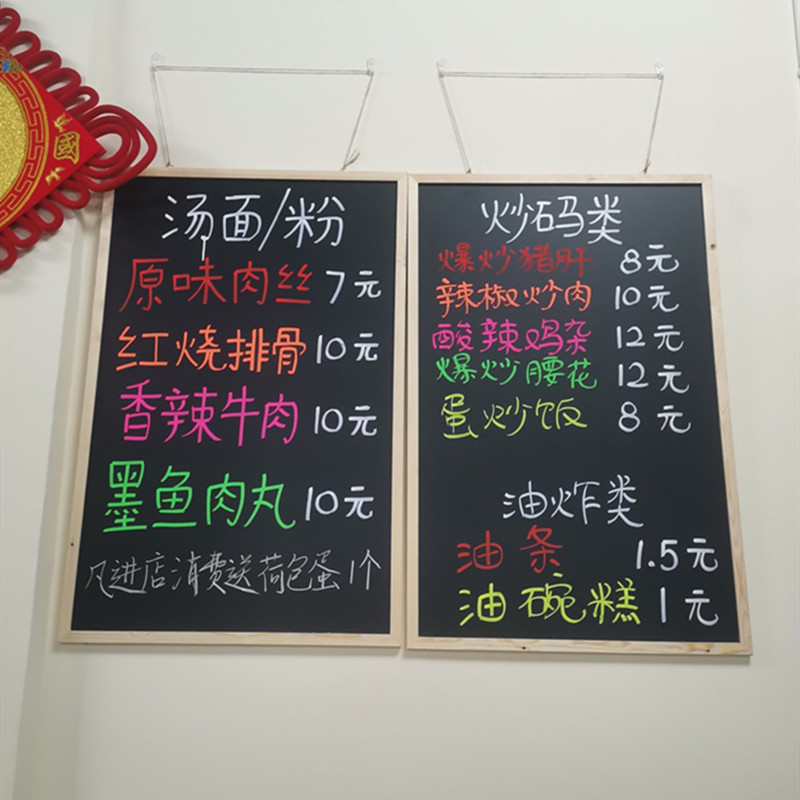 國
汤面/粉
原味肉丝 7元
红烧排骨 10元
香辣牛肉 10元
墨鱼肉丸 10元
凡进店消费送荷包蛋1个
炒码类
爆炒猪肝 8元
辣椒炒肉 10元
酸辣鸡杂 12元
爆炒腰花 12元
蛋炒饭 8元
油炸类
油条 1.5元
油碗糕 1元